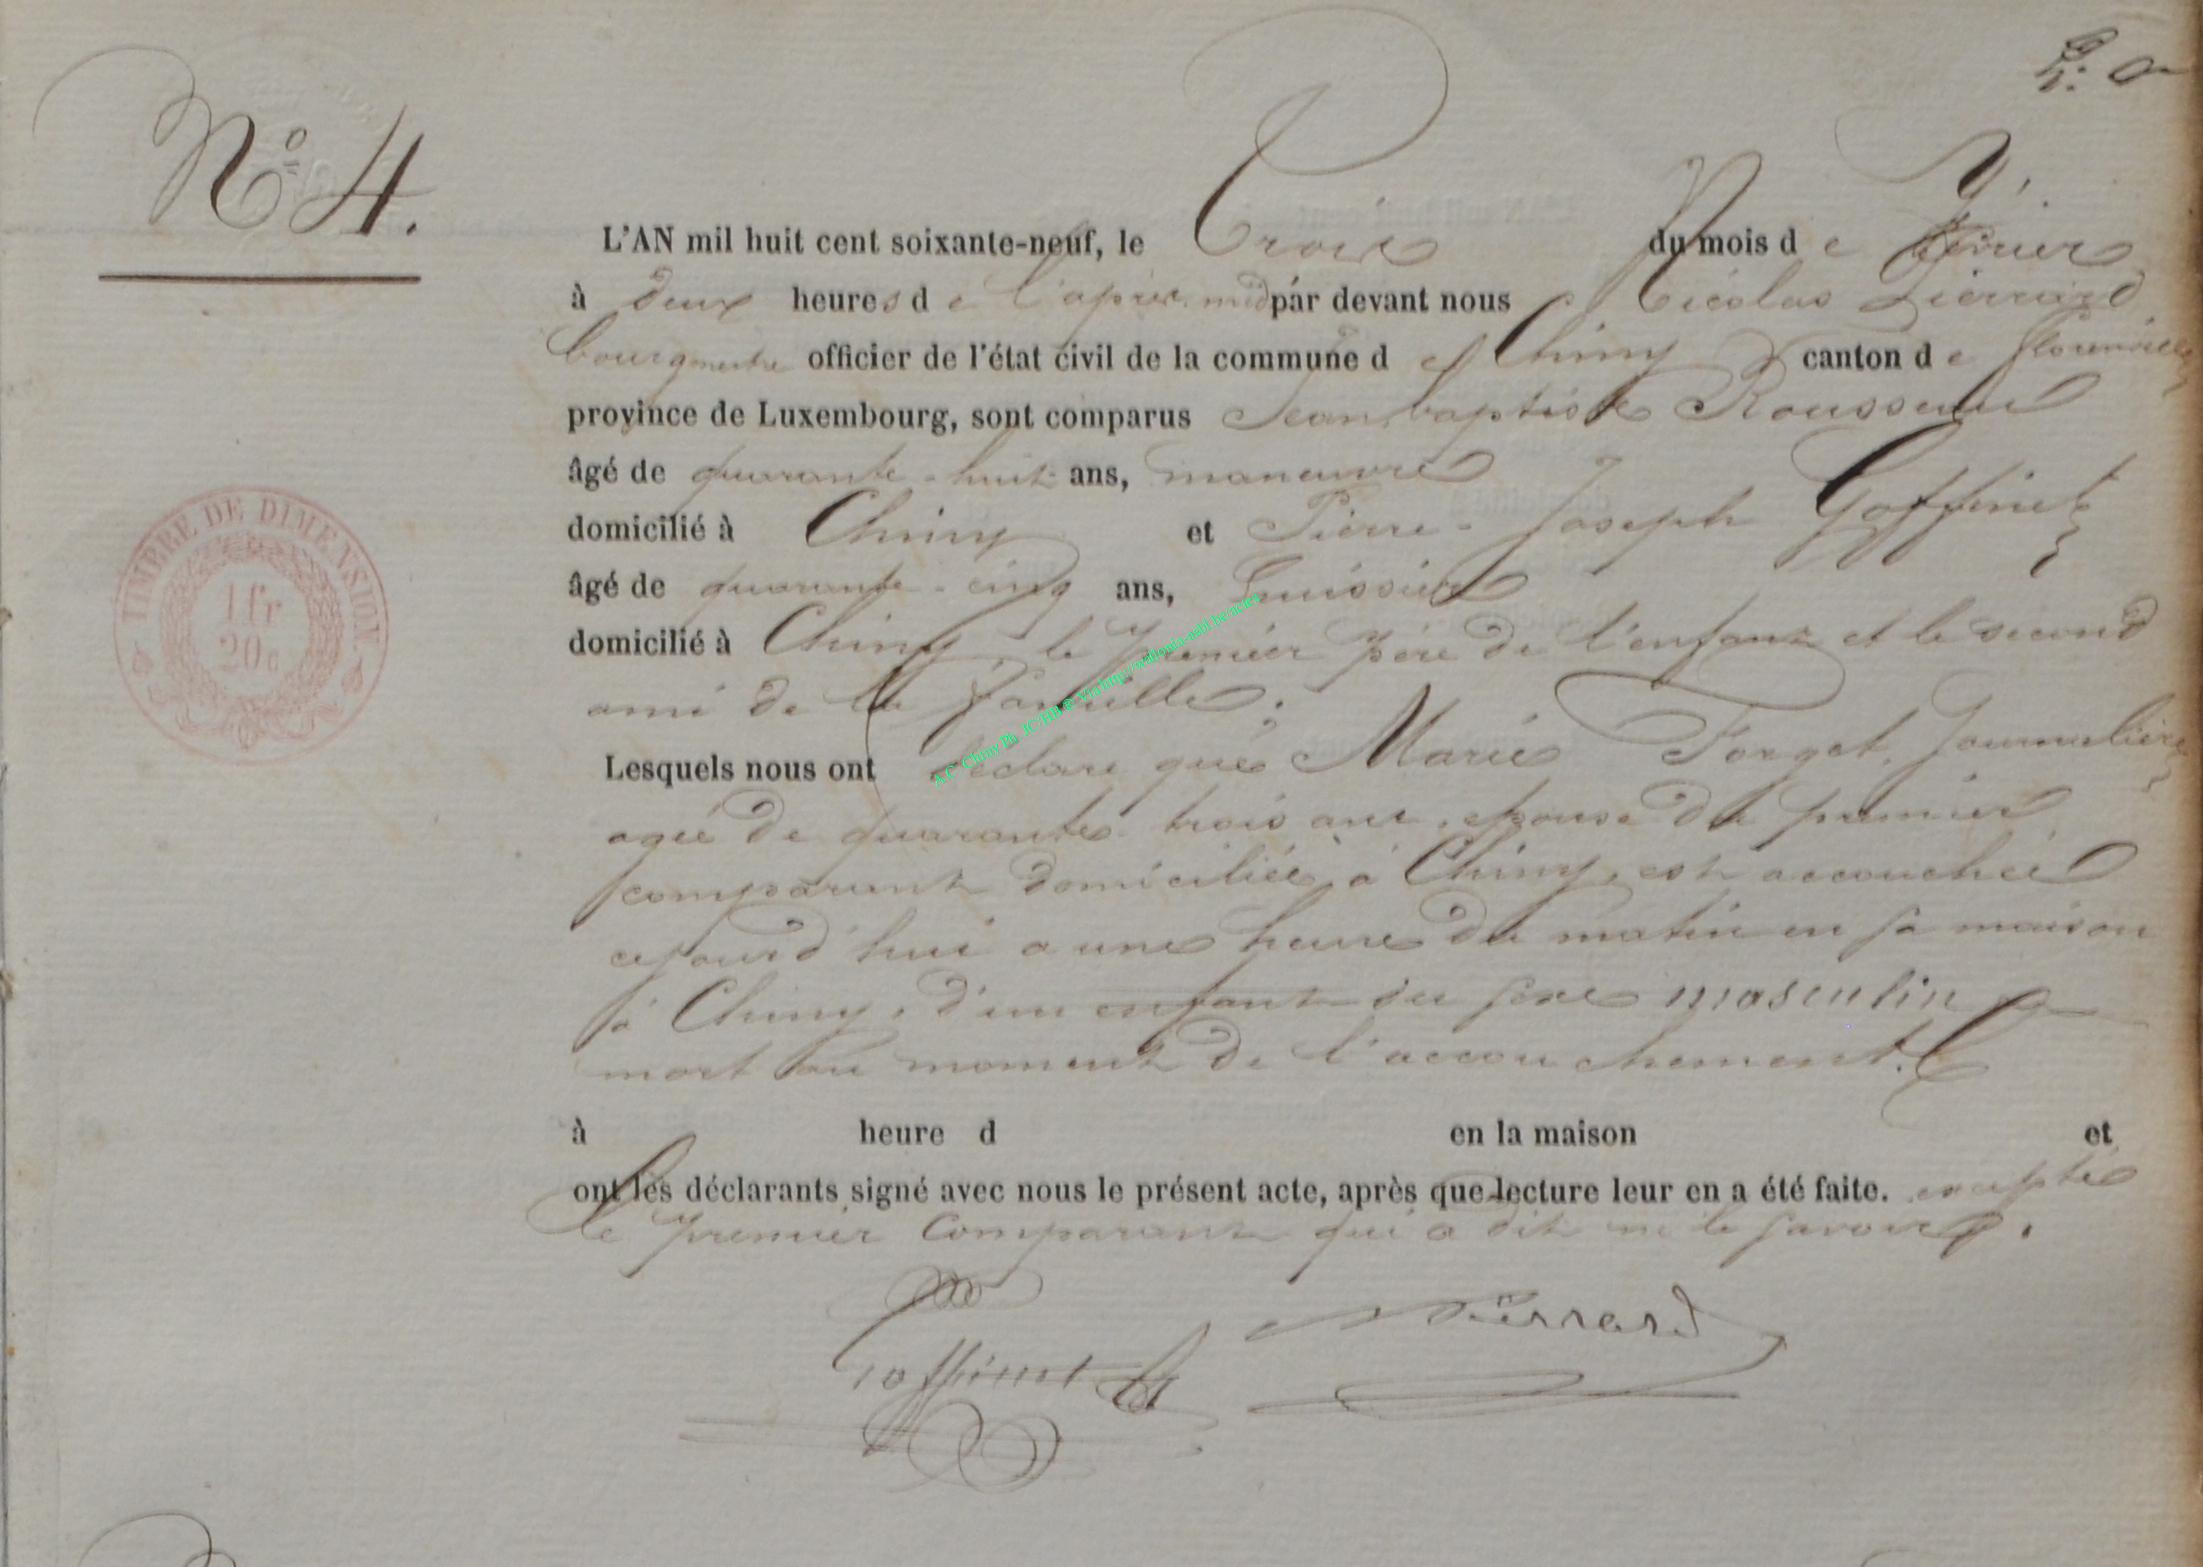 N° 4.
L'AN mil huit cent soixante-neuf, le Trois du mois de Février
à Deux heures de l'après-midi par devant nous Nicolas Pierrard
bourgmestre officier de l'état civil de la commune de Chiny canton de Florenville
province de Luxembourg, sont comparus Jean baptiste Rousseau
âgé de quarante-huit ans, manœuvre
domicilié à Chiny et Pierre-Joseph Goffinet
âgé de quarante-cinq ans, huissier
domicilié à Chiny, le premier père de l'enfant et le second
ami de la famille.
Lesquels nous ont déclaré que Marie Forget, Journalière
agée de quarante trois ans, epouse du premier
comparant domiciliée à Chiny, est accouchée
cejourd'hui a une heure du matin en sa maison
à Chiny, d'un enfant du sexe masculin
mort au moment de l'accouchement.
à heure d en la maison et
ont les déclarants signé avec nous le présent acte, après que lecture leur en a été faite. excepté
le premier comparant qui a dit ne le savoir.
Goffinet
NPierrard
TIMBRE DE DIMENSION
1 fr
20 c
A.C. Chiny Ph. JC/HB @ Via http://wallonia-asbl.be/actes